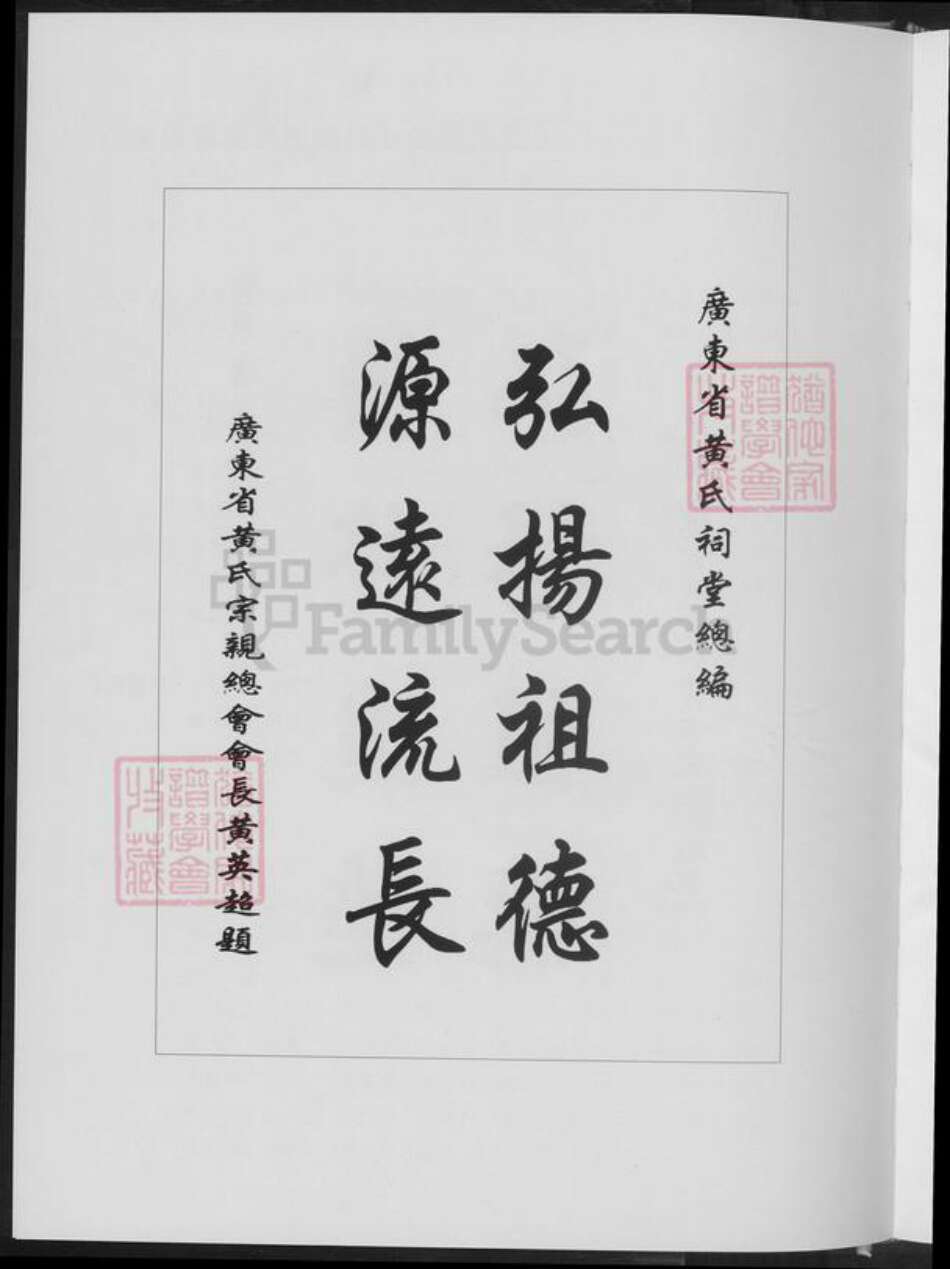 廣東省黄氏祠堂總編
弘揚祖德
源遠流長
廣東省黄氏宗親總會會長黄英超題
猶他家
譜學會
收藏
譜學會
收藏
FamilySearch